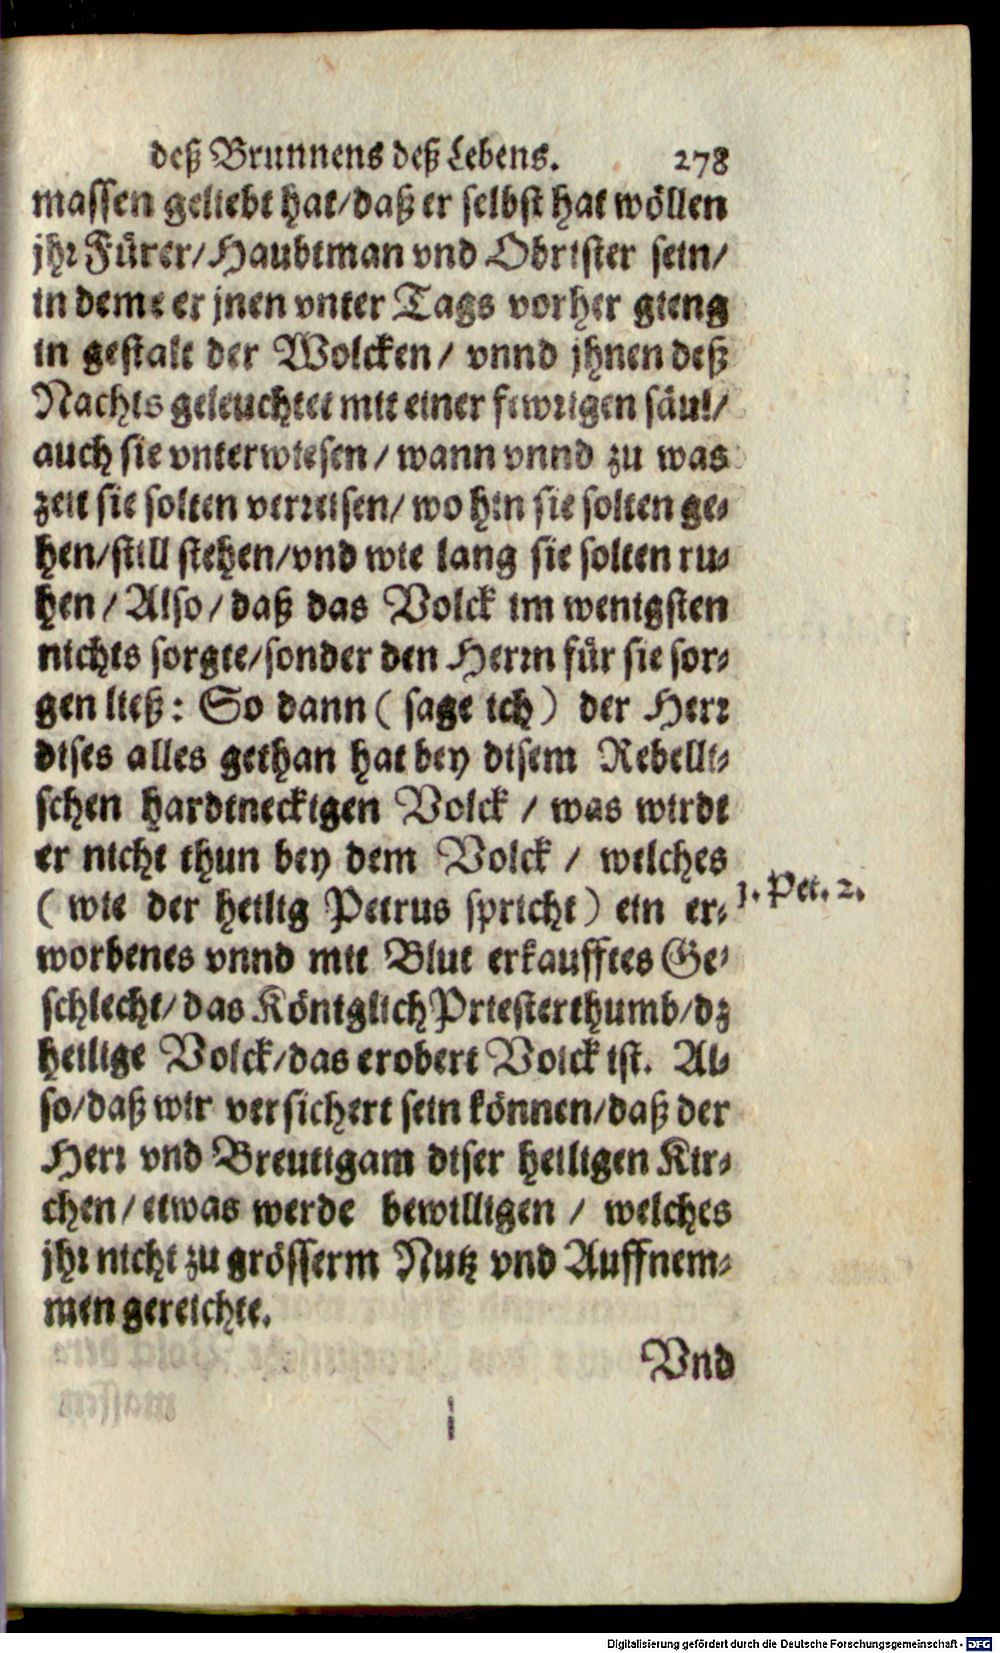 deß Brunnens deß Lebens. 278
massen geliebt hat/daß er selbst hat wöllen
jhr Fürer/Haubtman vnd Obrister sein/
in deme er jnen vnter Tags vorher gieng
in gestalt der Wolcken/ vnnd jhnen deß
Nachts geleuchtet mit einer fewrigen säul/
auch sie vnterwiesen/wann vnnd zu was
zeit sie solten verreisen/wo hin sie solten ge-
hen/still stehen/vnd wie lang sie solten ru-
hen/Also/daß das Volck im wenigsten
nichts sorgte/sonder den Herrn für sie sor-
gen ließ: So dann (sage ich) der Herr
dises alles gethan hat bey disem Rebelli-
schen hardtneckigen Volck / was wirdt
er nicht thun bey dem Volck / welches
(wie der heilig Petrus spricht) ein er-
1. Pet. 2.
worbenes vnnd mit Blut erkaufftes Ge-
schlecht/das Königlich Priesterthumb/dz
heilige Volck/das erobert Volck ist. Al-
so/daß wir versichert sein können/daß der
Herr vnd Breutigam diser heiligen Kir-
chen/etwas werde bewilligen / welches
jhr nicht zu grösserm Nutz vnd Auffnem-
men gereichte.
Vnd
Digitalisierung gefördert durch die Deutsche Forschungsgemeinschaft - DFG